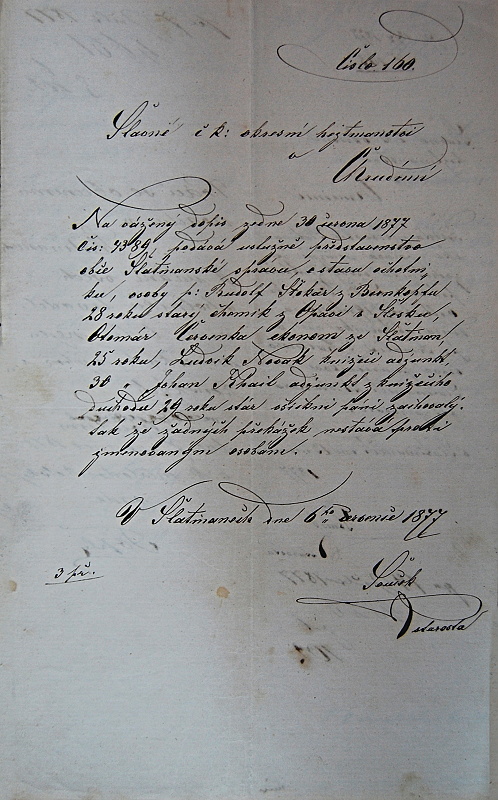 Číslo 160.
Slavné c k: okresní hejtmanství
v
Chrudimi
Na vážený dopis ze dne 30 června 1877
čís: 7389, podává uslužně představenstvo
obce Slatiňanské zprávu, o stavu ochotni
ků, osoby p: Rudolf Stokár z
28 roku starý chemik z Opavi v Slesku,
Otomár Červenka ekonom ze Slatiňan
25 roku, Ludvík Novák knížecí adjunkt
30 " Johan adjunkt z knížecího
důchodu 29 roku stár všickni páni zachovalý.
tak že žádných překážek nestává proti
jmenovaným osobám.
V Slatiňanech dne 6ho července 1877.
3 př.
Souček
starosta